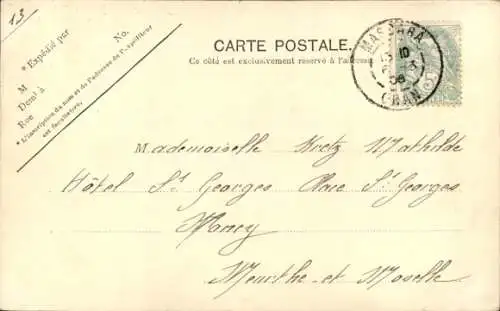 13
No.
* Expédié par
M
Demt à
Rue
* L'inscription du nom et de l'adresse de l'expéditeur
est facultative.
CARTE POSTALE.
Ce côté est exclusivement réservé à l'adresse
MASCARA
10
06
ORAN
Mademoiselle Kretz Mathilde
Hôtel St Georges Place St Georges
Nancy
Meurthe-et Moselle